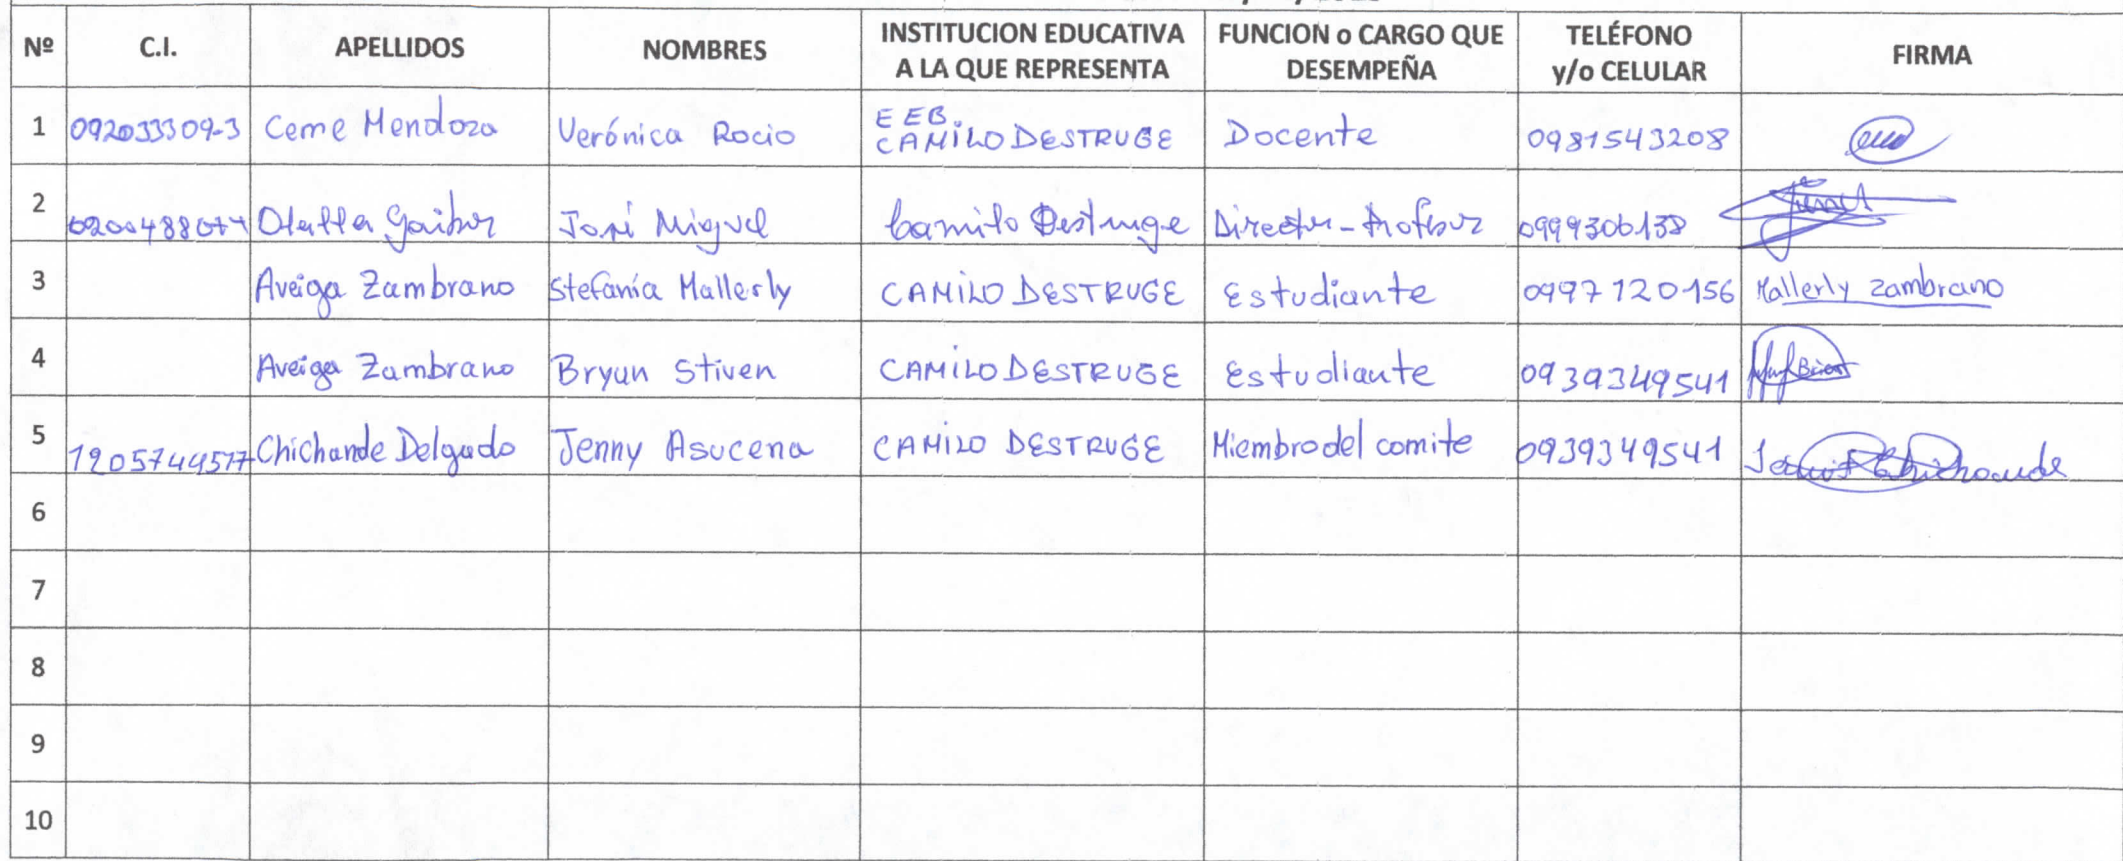 Nº C.I. APELLIDOS NOMBRES INSTITUCION EDUCATIVA A LA QUE REPRESENTA FUNCION o CARGO QUE DESEMPEÑA TELÉFONO y/o CELULAR FIRMA
1 092033309-3 Ceme Mendoza Verónica Rocio EEB. CAMILO DESTRUGE Docente 0981543208
2 José Miguel Camilo Destruge Director-Profesor 0999306138
3 Aveiga Zambrano Stefanía Mallerly CAMILO DESTRUGE Estudiante 0997120156 Mallerly Zambrano
4 Aveiga Zambrano Bryan Stiven CAMILO DESTRUGE Estudiante 0939349541
5 Chichande Delgado Jenny Asucena CAMILO DESTRUGE Miembro del comite 0939349541
6
7
8
9
10